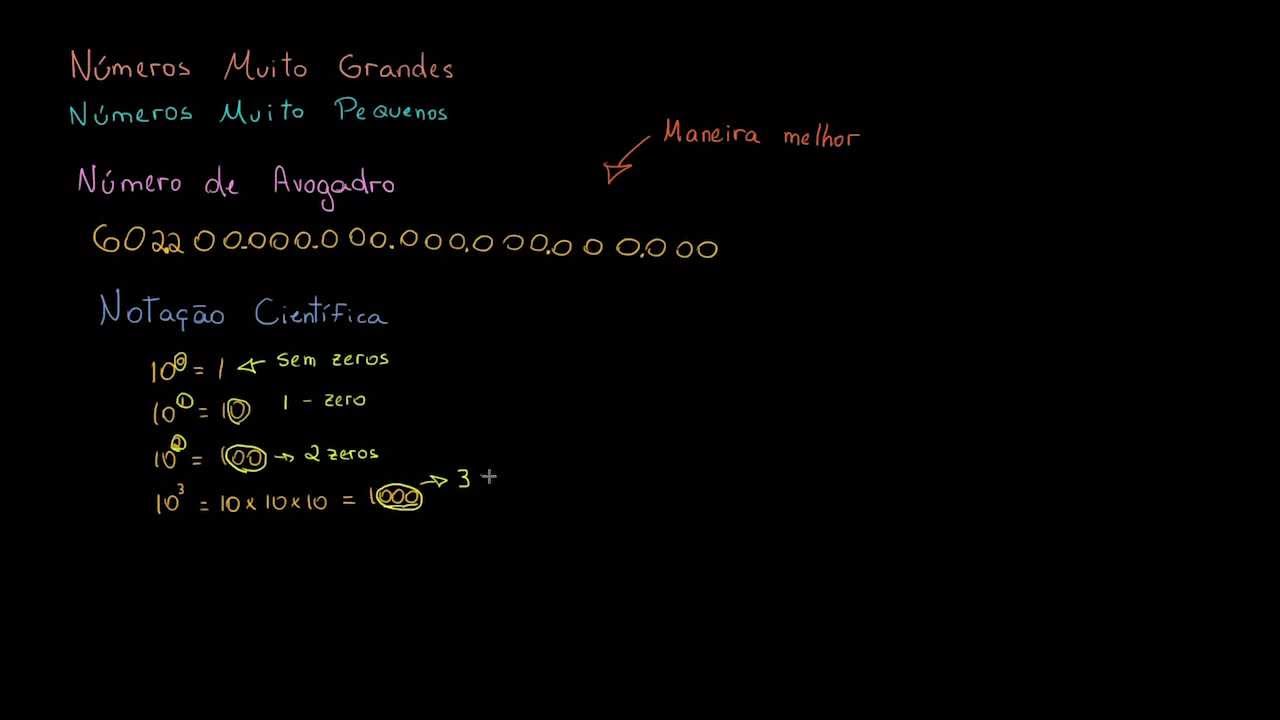 Números Muito Grandes
Números Muito Pequenos
Maneira melhor
Número de Avogadro
602.200.000.000.000.000.000.000
Notação Científica
10⁰ = 1 ← sem zeros
10¹ = 10 1 - zero
10² = 100 → 2 zeros
10³ = 10 × 10 × 10 = 1000 → 3